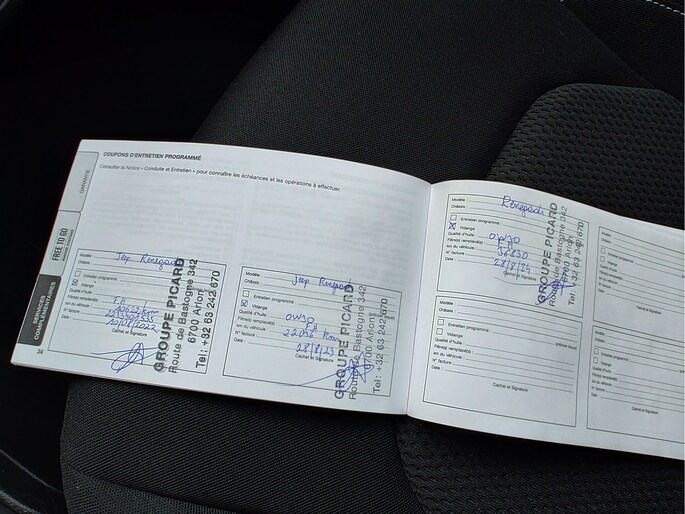 COUPONS D'ENTRETIEN PROGRAMMÉ
Consulter la Notice « Conduite et Entretien » pour connaître les échéances et les opérations à effectuer.
GARANTIE
FREE TO GO
SERVICES COMPLÉMENTAIRES
34
Modèle Jeep Renegade
Châssis
Entretien programmé
Vidange
Qualité d'huile
Filtre(s) remplacé(s) FH
km du véhicule
N° facture
Date
Cachet et Signature
GROUPE PICARD
Route de Bastogne 342
6700 Arlon
Tel : +32 63 242 670
Modèle Jeep Renegade
Châssis
Entretien programmé
Vidange
Qualité d'huile 0W30
Filtre(s) remplacé(s) FH
km du véhicule
N° facture
Date 28/8/23
Cachet et Signature
GROUPE PICARD
Route de Bastogne 342
6700 Arlon
Tel : +32 63 242 670
Modèle Renegade
Châssis
Entretien programmé
Vidange
Qualité d'huile 0W30
Filtre(s) remplacé(s) FH
km du véhicule 36830
N° facture
Date 28/8/24
GROUPE PICARD
Route de Bastogne 342
6700 Arlon
Tel : +32 63 242 670
Modèle
Châssis
Entretien programmé
Vidange
Qualité d'huile
Filtre(s) remplacé(s)
km du véhicule
N° facture
Date
Cachet et Signature
Modèle
Châssis
Entretien programmé
Vidange
Qualité d'huile
Filtre(s) remplacé(s)
km du véhicule
N° facture
Date
Modèle
Châssis
Entretien programmé
Vidange
Qualité d'huile
Filtre(s) remplacé(s)
km du véhicule
N° facture
Date
Cachet et Signature